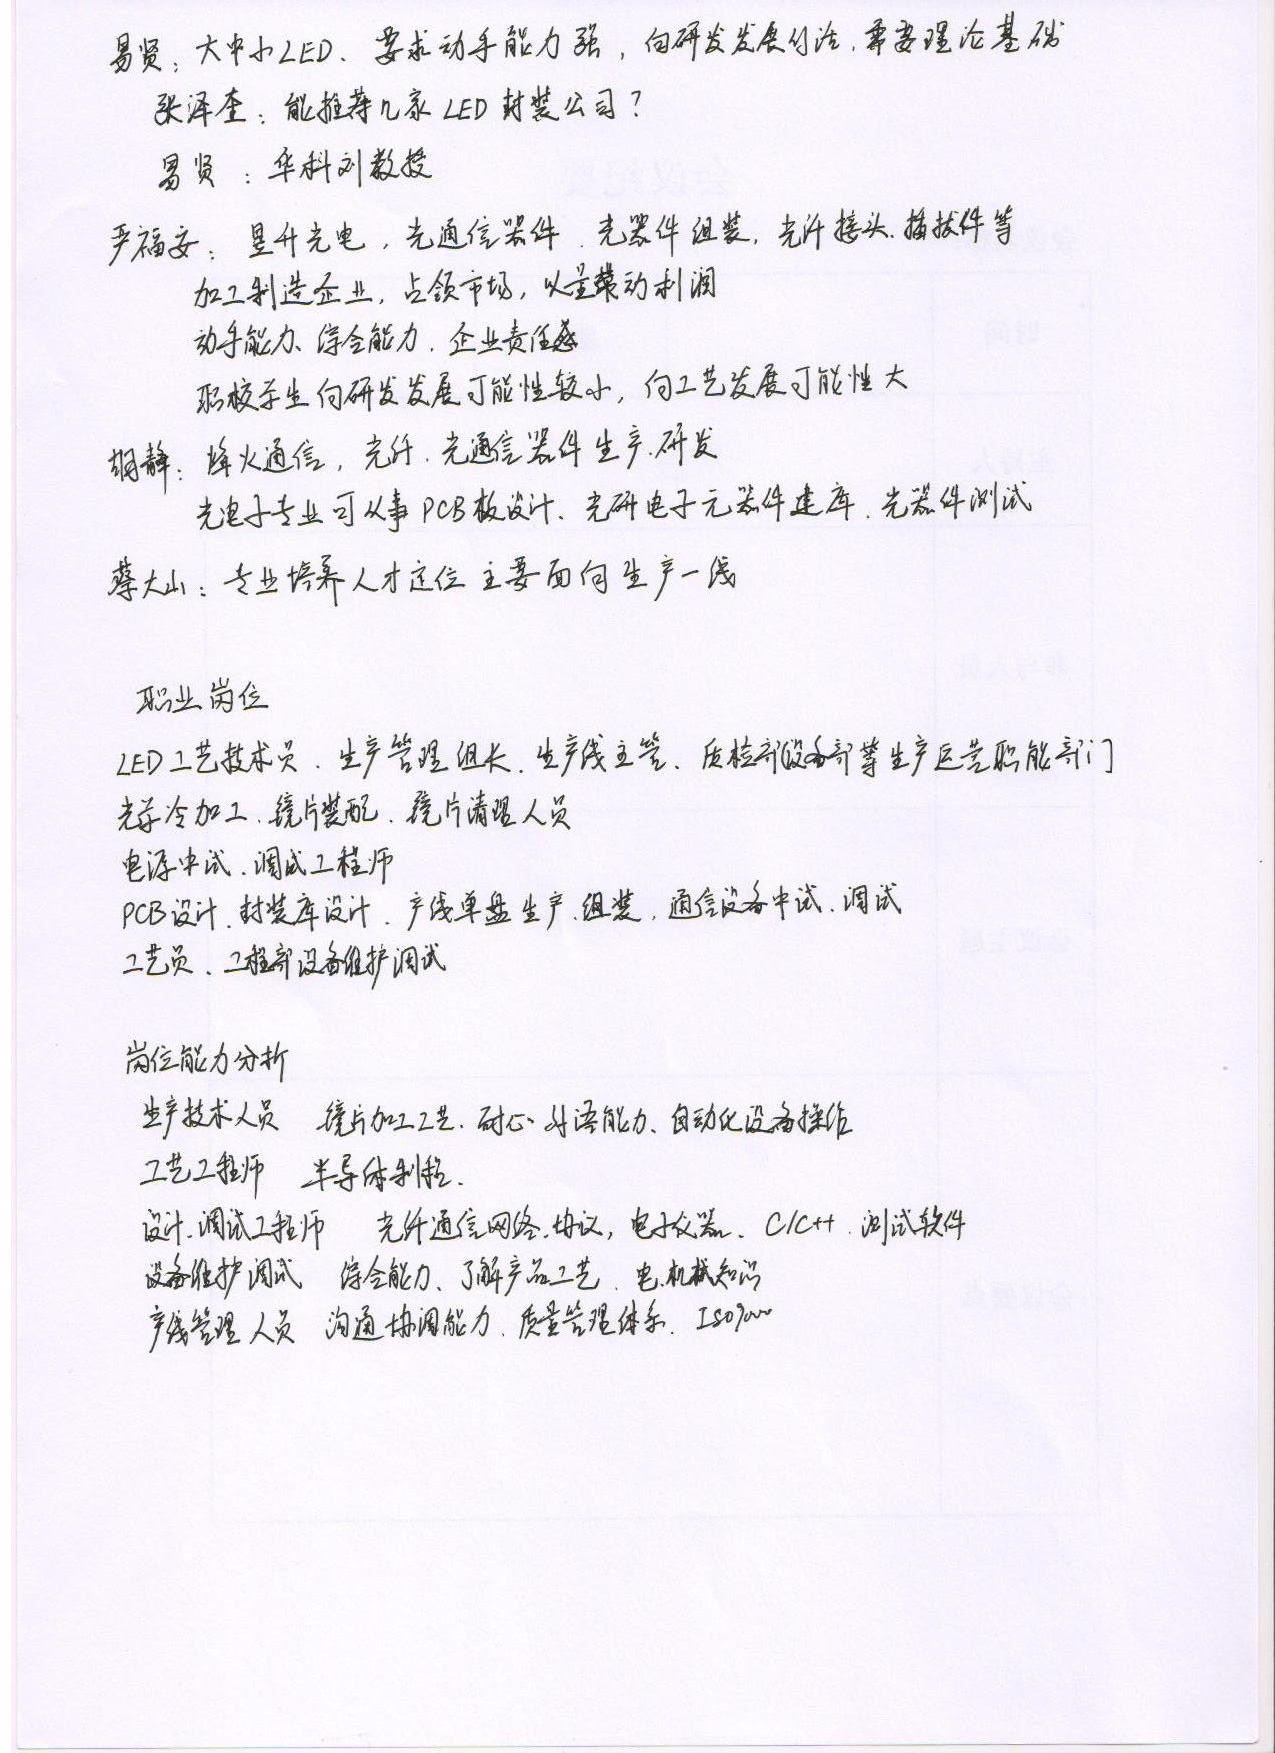 易贤：大中小LED、要求动手能力强，向研发发展付法，需要理论基础
张泽奎：能推荐几家LED封装公司？
易贤：华科刘教授
严福安：昱升光电，光通信器件、光器件组装，光纤接头、插拔件等
加工制造企业，占领市场，以量带动利润
动手能力、综合能力、企业责任感
职校学生向研发发展可能性较小，向工艺发展可能性大
胡静：烽火通信，光纤、光通信器件生产、研发
光电子专业可从事PCB板设计、光研电子元器件建库、光器件测试
蔡大山：专业培养人才定位主要面向生产一线
职业岗位
LED工艺技术员、生产管理组长、生产线主管、质检部设备部等生产运营职能部门
光学冷加工、镜片装配、镜片清理人员
电源中试、调试工程师
PCB设计、封装库设计、产线单盘生产、组装、通信设备中试、调试
工艺员、工程部设备维护调试
岗位能力分析
生产技术人员 镜片加工工艺、耐心、外语能力、自动化设备操作
工艺工程师 半导体制程、
设计、调试工程师 光纤通信网络、协议，电子仪器、C/C++、测试软件
设备维护调试 综合能力、了解产品工艺、电、机械知识
产线管理人员 沟通协调能力、质量管理体系、ISO9000